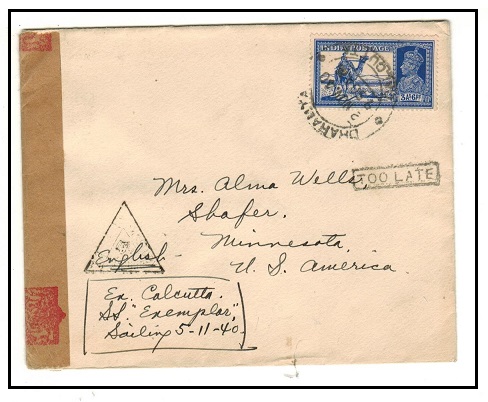 INDIA POSTAGE
TOO LATE
Mrs. Alma Wells,
Shafer,
Minnesota,
U. S. America.
English
Ex. Calcutta.
SS. "Exemplar",
Sailing 5-11-40.